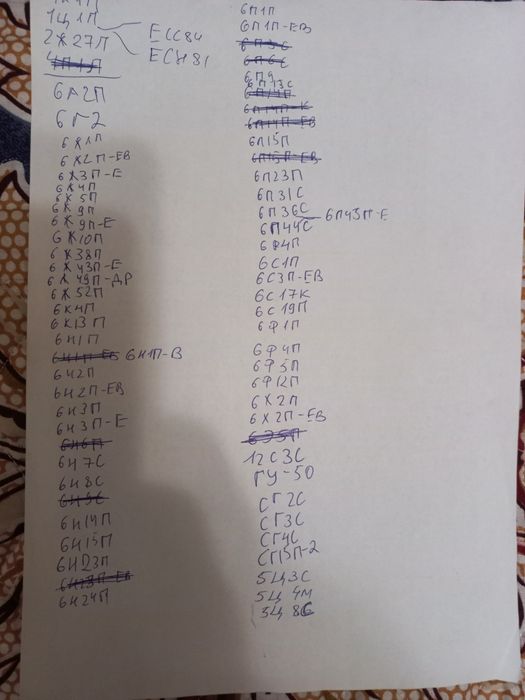 1Ц1П
2Ж27П
ECC84
ECH81
6А2П
6Г2
6Ж1П
6Ж2П-ЕВ
6Ж3П-Е
6Ж4П
6Ж5П
6Ж9П
6Ж9П-Е
6Ж10П
6Ж38П
6Ж43П-Е
6Ж49П-ДР
6Ж52П
6К4П
6К13П
6Н1П
6Н1П-ЕВ 6Н1П-В
6Н2П
6Н2П-ЕВ
6Н3П
6Н3П-Е
6Н6П
6Н7С
6Н8С
6Н9С
6Н14П
6Н15П
6Н23П
6Н23П-ЕВ
6Н24П
6П1П
6П1П-ЕВ
6П3С
6П6С
6П9
6П13С
6П14П
6П14П-К
6П14П-ЕВ
6П15П
6П15П-ЕВ
6П23П
6П31С
6П36С 6П43П-Е
6П44С
6Ф4П
6С1П
6С3П-ЕВ
6С17К
6С19П
6Ф1П
6Ф4П
6Ф5П
6Ф12П
6Х2П
6Х2П-ЕВ
6Э5П
12С3С
ГУ-50
СГ2С
СГ3С
СГ4С
СГ15П-2
5Ц3С
5Ц4М
5Ц8С